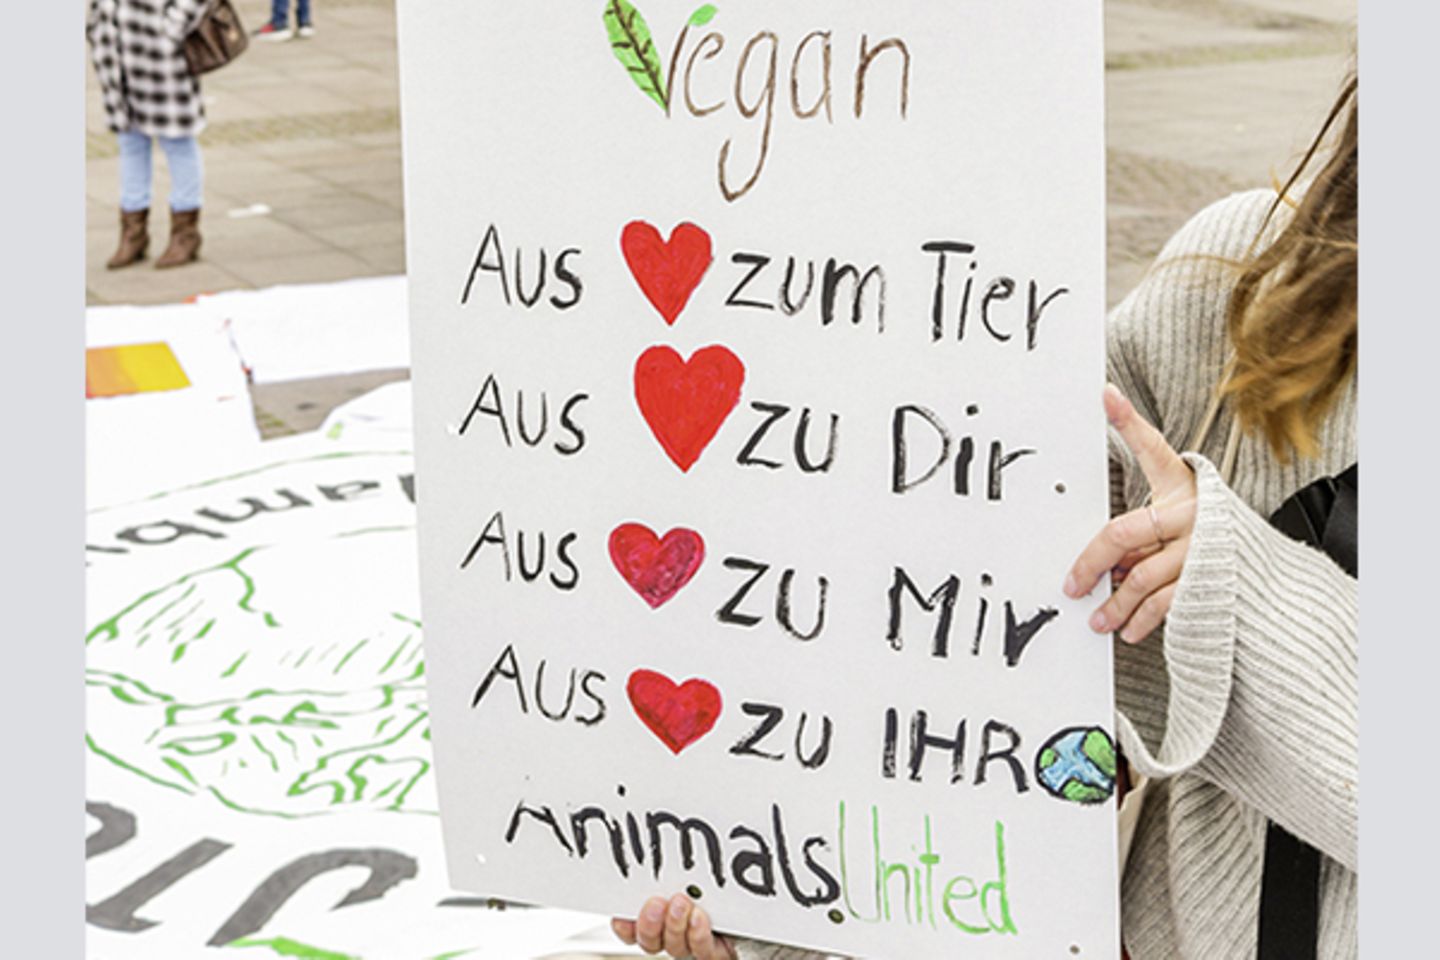 Vegan
Aus ❤ zum Tier
Aus ❤ zu Dir.
Aus ❤ zu Mir
Aus ❤ zu IHR🌍
Animals United